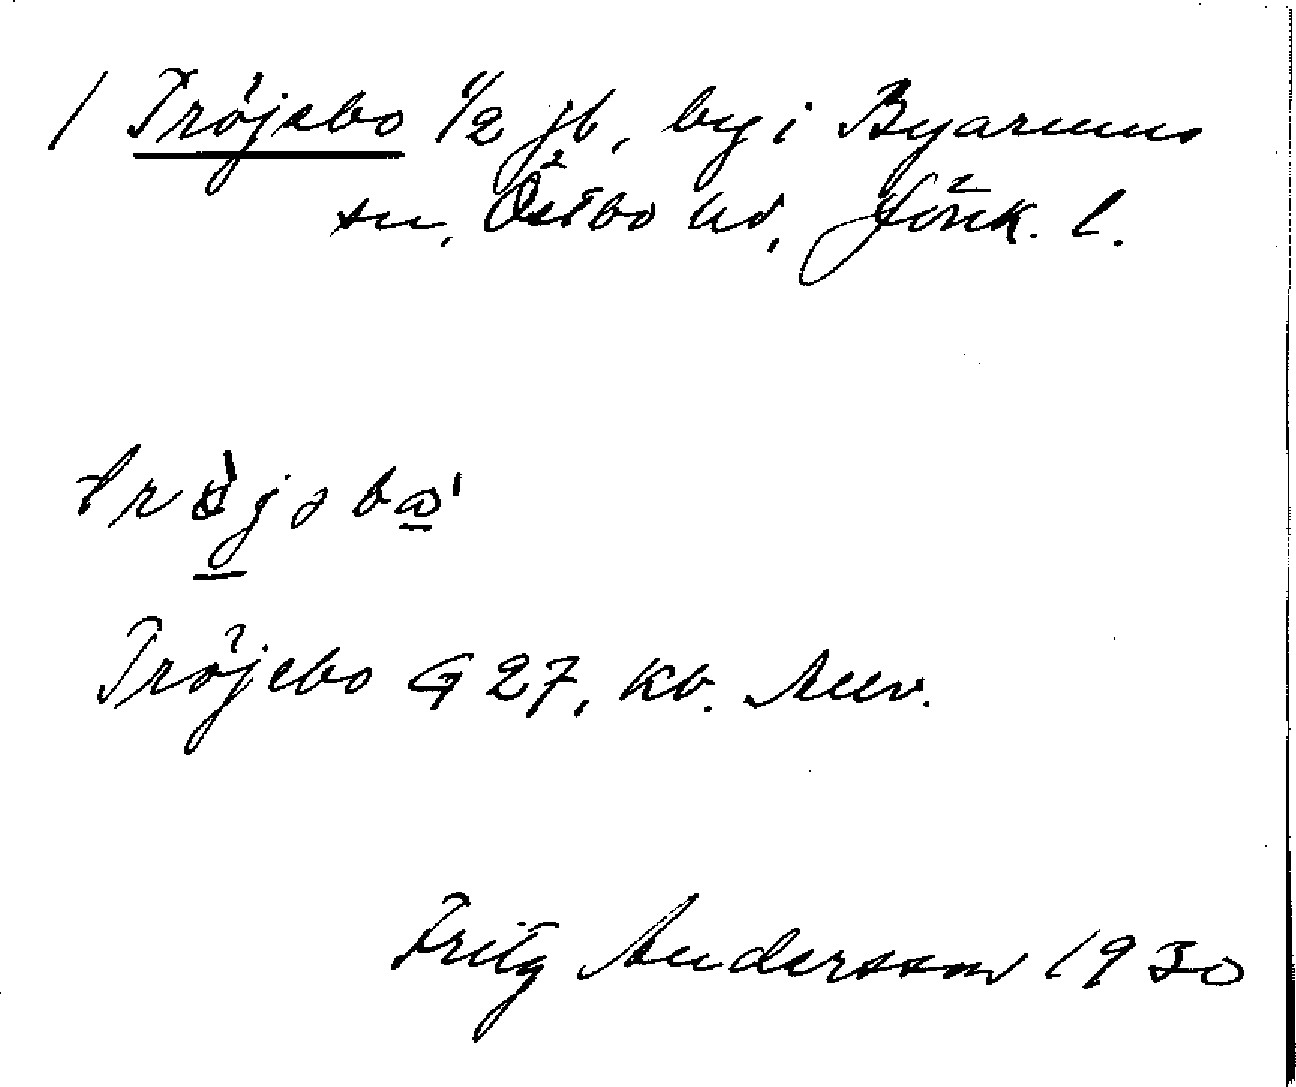 / Tröjebo 1/2 jb, by i Byarums
sn, Östbo hd, Jönk. l.
Tröjebo G 27, kb. Muv.
Fritz Andersson 1930